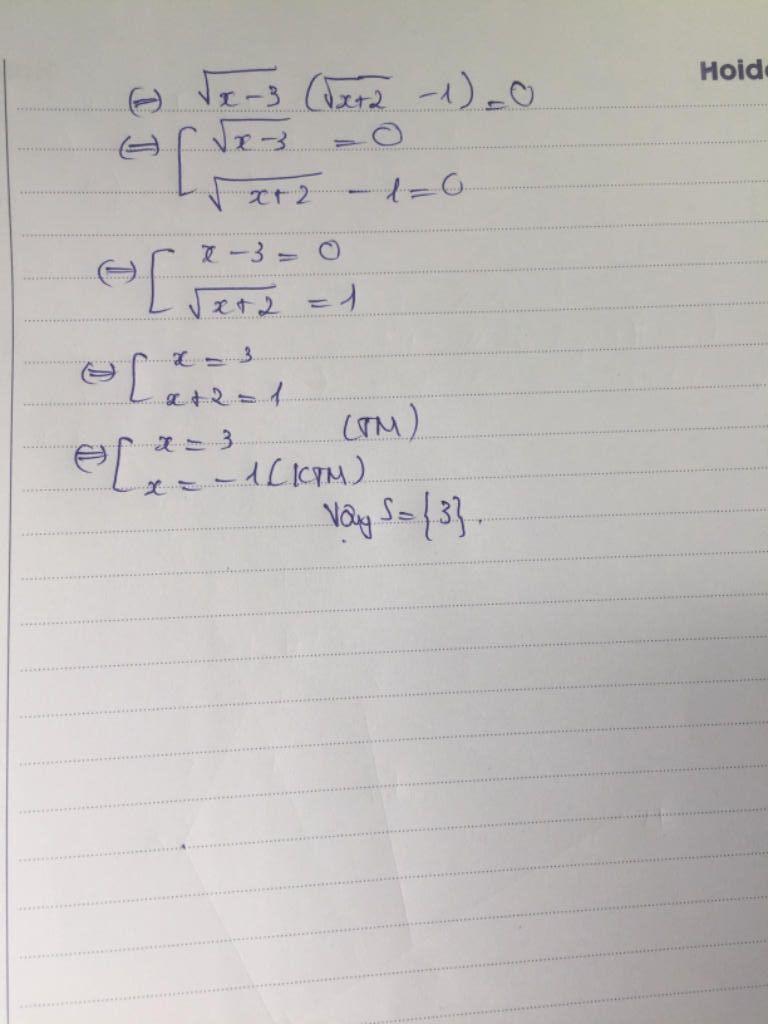 Hoid
(=) √x-3 (√x+2 -1) = 0
(=) [ √x-3 = 0
√x+2 - 1 = 0
(=) [ x-3 = 0
√x+2 = 1
(=) [ x = 3
x+2 = 1
(=) [ x = 3 (TM)
x = -1 (KTM)
Vậy S = {3}.